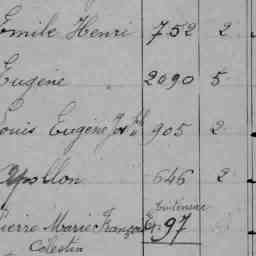 Emile Henri 752 2
Eugène 2090 5
Louis Eugène Jos 905 2
Apollon 646 2
Pierre Marie François 97
Célestin